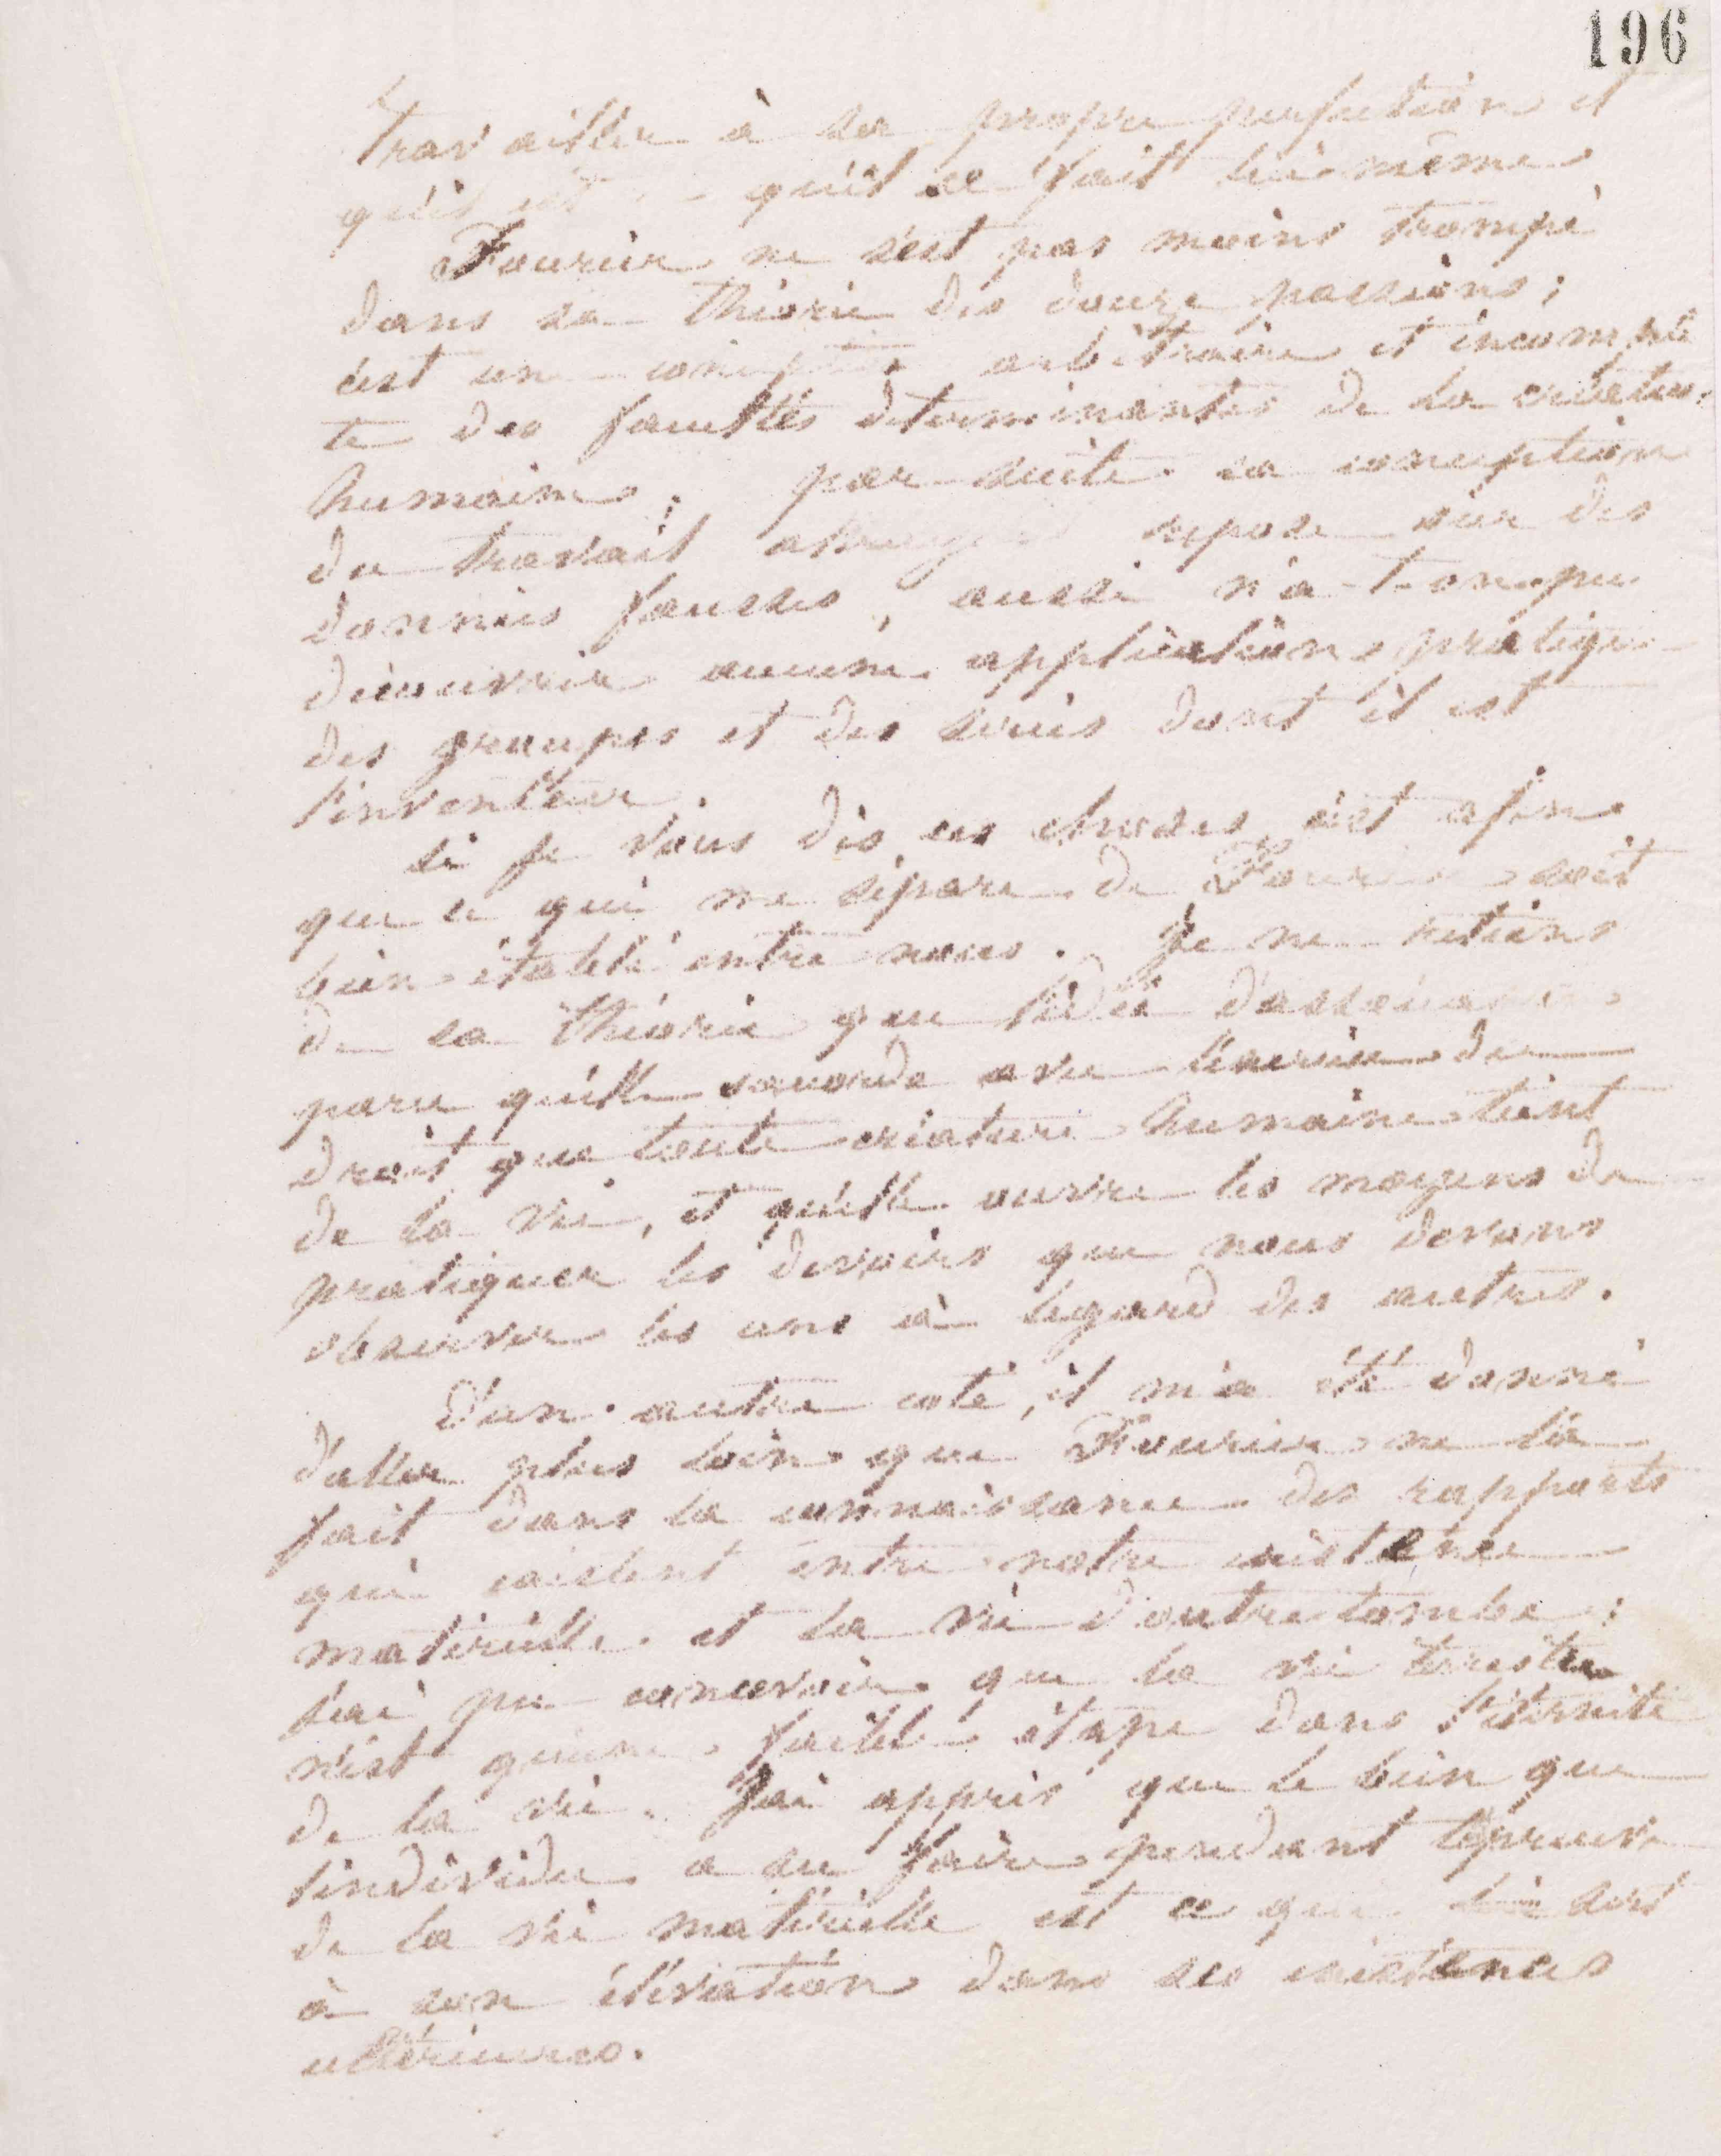 196
travailler à sa propre perfection et
qu'il est qu'il se fait lui-même
Fourier ne s'est pas moins trompé
dans sa théorie des douze passions;
c'est une arbitraire et incomplè
te des facultés déterminantes de la créature
humaine; par suite sa conception
du travail repose sur des
données fausses, aussi n'a-t-on pu
découvrir aucune application pratique
des groupes et des séries dont il est
l'inventeur.
Si je vous dis ces choses, c'est afin
que ce qui me sépare de Fourier soit
bien établi entre nous. Je ne retiens
de sa théorie que l'idée d'association
parce qu'elle concorde avec l'exercice du
droit que toute créature humaine tient
de la vie, et qu'elle ouvre les moyens de
pratiquer les devoirs que nous devons
observer les uns à l'égard des autres.
D'un autre coté, il m'a été donné
d'aller plus loin que Fourier ne l'a
fait dans la connaissance des rapports
qui existent entre notre existence
matérielle et la vie d'outre tombe;
j'ai pu concevoir que la vie terrestre
n'est qu'une faible étape dans l'éternité
de la vie. J'ai appris que le bien que
l'individu a su faire pendant l'épreuve
de la vie matérielle est ce qui lui sert
à son élévation dans ses existences
ultérieures.